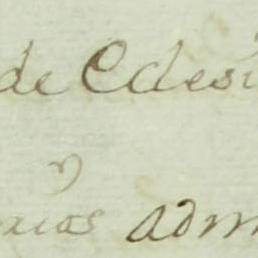 de Eclesi
xios adm